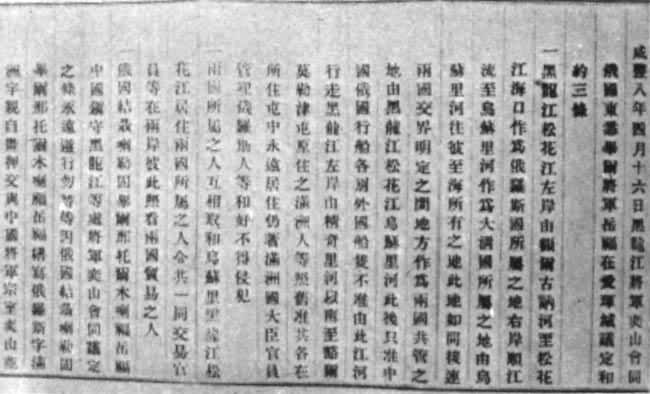 咸豐八年四月十六日黑龍江將軍奕山會同
俄國東悉畢爾將軍岳福在愛琿城議定和
約三條
一黑龍江松花江左岸由額爾古訥河至松花
江海口作爲俄羅斯國所屬之地右岸順江
流至烏蘇里河作爲大淸國所屬之地由烏
蘇里河往彼至海所有之地此地如同接連
兩國交界明定之間地方作爲兩國共管之
地由黑龍江松花江烏蘇里河此後只准中
國俄國行船各別外國船隻不准由此江河
行走黑龍江左岸由精奇里河以南至豁爾
莫勒津屯原住之滿洲人等照舊准其各在
所住屯中永遠居住仍著滿洲國大臣官員
管理俄羅斯人等和好不得侵犯
一兩國所屬之人互相取和烏蘇里黑龍江松
花江居住兩國所屬之人令其一同交易官
員等在兩岸彼此照看兩國貿易之人
一俄國結聶喇勒固畢爾那托爾木喇福岳福
中國鎭守黑龍江等處將軍奕山會同議定
之條永遠遵行勿替等因俄國結聶喇勒固
畢爾那托爾木喇福岳福繕寫俄羅斯字滿
洲字親自畫押交與中國將軍宗室奕山並